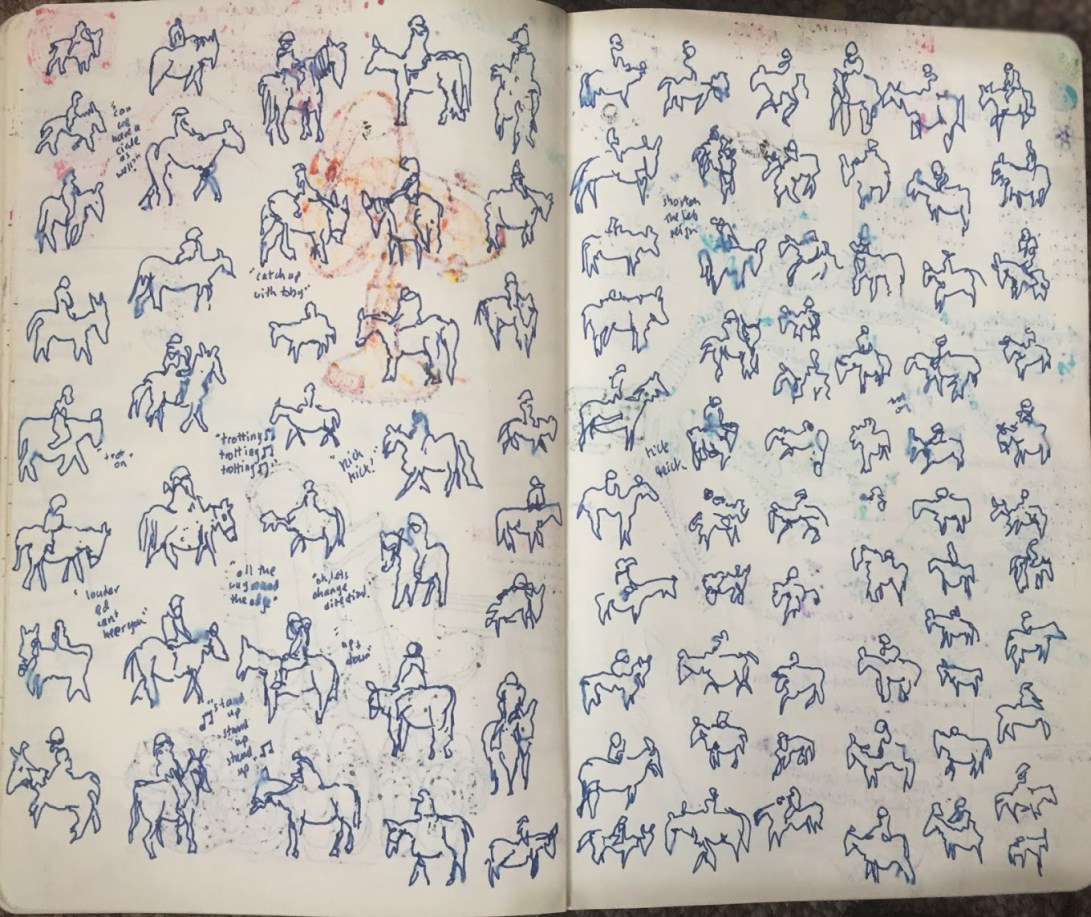 "can
we
have a
circle
as
well"
"catch up
with toby"
"trot
on"
"trotting♫
trotting♫
trotting♫"
"kick
kick!"
"all the
way round
the edge"
"ok, lets
change
direction!"
"louder
ed
can't
hear you"
"up +
down"
♫"stand
up
stand
up
stand ♫
up
shorten
the left
reign
kick
kick